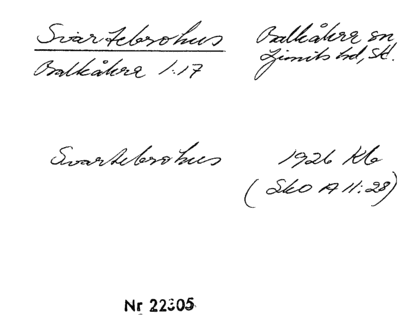 Svartebrohus Balkåkra sn
Balkåkra 1:17 Ljunits hd, Sk.
Svartebrohus 1926 Kb
(Sko A 11:28)
Nr 22305